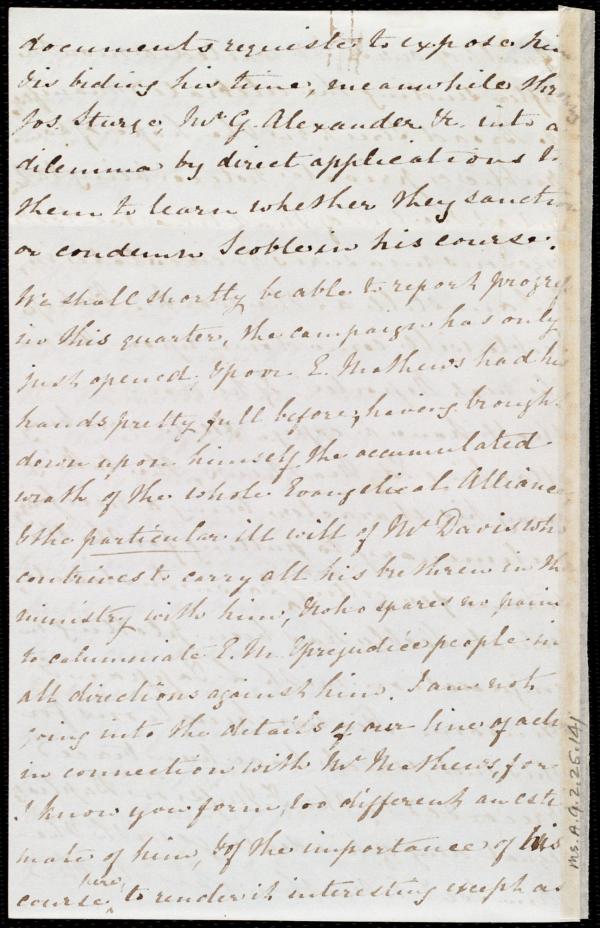 documents requisite to expose him
is biding his time, meanwhile thr
Jos. Sturge, Mr G. Alexander &c. into a
dilemma by direct applications to
them to learn whether they sanction
or condemn Scoble in his course.
We shall shortly be able to report progress
in this quarter, the campaign has only
just opened, & poor E. Mathews had his
hands pretty full before, having brought
down upon himself the accumulated
wrath of the whole Evangelical Alliance
& the particular ill will of Mr Davis who
contrives to carry all his brethren in th
ministry with him, & who spares no pain
to calumniate E.M. & prejudice people in
all directions against him. I am not
going into the details of our line of acti
in connection with Mr Mathews, for
I know you form too different an esti
mate of him, & of the importance of his
here
course, to render it interesting except as
Ms. A. 9. 2. 26. 14